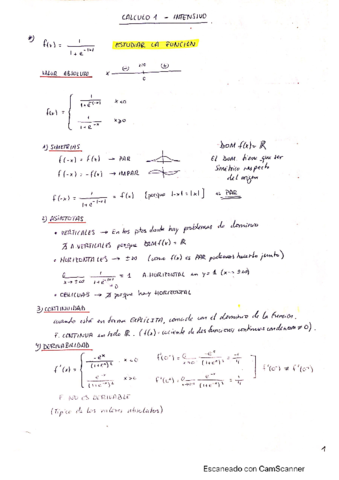 CALCULO 1 - INTENSIVO
f(x) = 1 / (1 + e^{-|x|}) ESTUDIAR LA FUNCIÓN
VALOR ABSOLUTO x (-) 0 (+)
f(x) = { 1 / (1 + e^{-(-x)}) x<0
1 / (1 + e^{-x}) x≥0
1) SIMETRIAS
DOM f(x) = ℝ
f(-x) = f(x) → PAR
El DOM. tiene que ser
f(-x) = -f(x) → IMPAR
simétrico respecto
del origen
f(-x) = 1 / (1 + e^{-|-x|}) = f(x) [porque |-x| = |x|] es PAR
2) ASINTOTAS
• VERTICALES → En los ptos donde hay problemas de dominio
∄ A VERTICALES porque DOM f(x) = ℝ
• HORIZONTALES → ±∞ (como f(x) es PAR podemos hacerlo junto)
1 / (1 + e^{-|x|}) = 1 A. HORIZONTAL en y = 1
• OBLICUAS → ∄ porque hay HORIZONTAL
3) CONTINUIDAD
cuando está en forma EXPLICITA, coincide con el dominio de la función.
F. CONTINUA en todo ℝ. (f(x) = cociente de dos funciones continuas con denom ≠ 0).
4) DERIVABILIDAD
x<0
x>0
f'(0⁻) ≠ f'(0⁺)
F. NO ES DERIVABLE
(Típico de los valores absolutos)
1
Escaneado con CamScanner